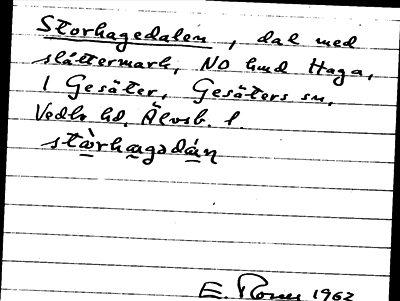 Storhagedalen, dal med
slåttermark, NO hmd Haga,
1 Gesäter, Gesäters sn,
Vedbo hd, Älvsb. l.
stòrhagadán
E. 1962